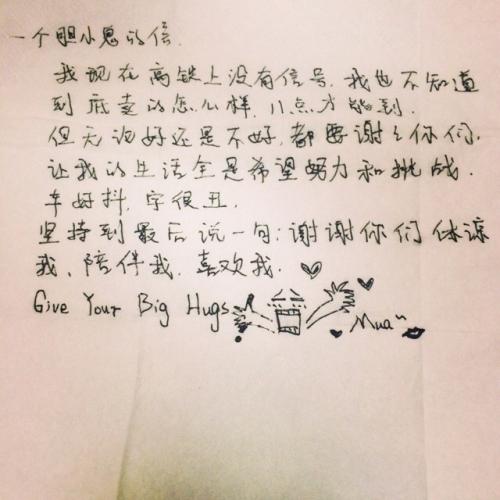 一个胆小鬼的信.
我现在高铁上没有信号,我也不知道
到底卖的怎么样,11点才能到.
但无论好还是不好,都要谢谢你们.
让我的生活全是希望努力和挑战.
车好抖,字很丑.
坚持到最后说一句:谢谢你们体谅
我、陪伴我.喜欢我.
Give Your Big Hugs
Mua~